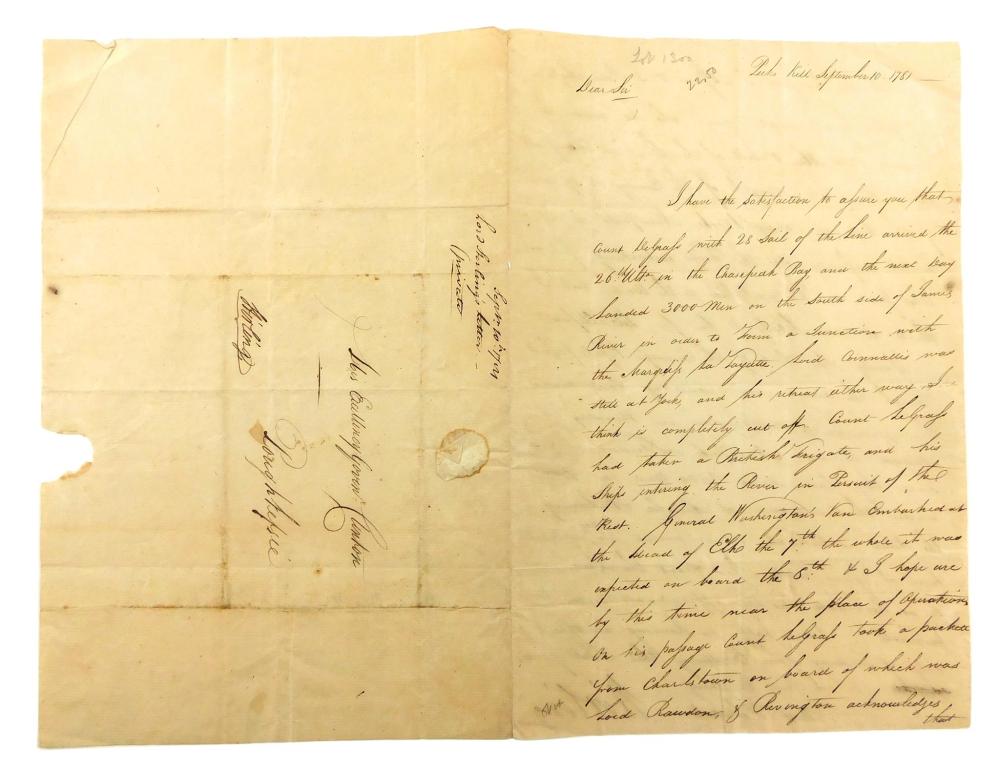 Lot 1300
22.50
Peeks Kill September 10. 1781
Dear Sir
I have the satisfaction to assure you that
Count DeGrass with 28 Sail of the Line arrived the
26th Ulto. in the Chasepeak Bay, and the next Day
Landed 3000 Men on the South side of James
River in order to Form a Junction with
the Marquiss La Fayette. Lord Cornwallis was
still at York, and his retreat either way I
think is completely cut off. Count De Grass
had taken a British Frigate, and his
Ships entering the River in Persuit of the
Rest. General Washington's Van Embarked at
the Head of Elk the 7th. the whole it was
expected on board the 8th. & I hope are
by this time near the place of Operations
On his passage Count De Grass took a packett
from Charlstown on board of which was
Lord Rawdon, & Rivington acknowledges
that
Septr. 10th. 1781
Lord Stirlings letter
(private)
His Excellency Governr. Clinton
Poughkepsie
Stirling